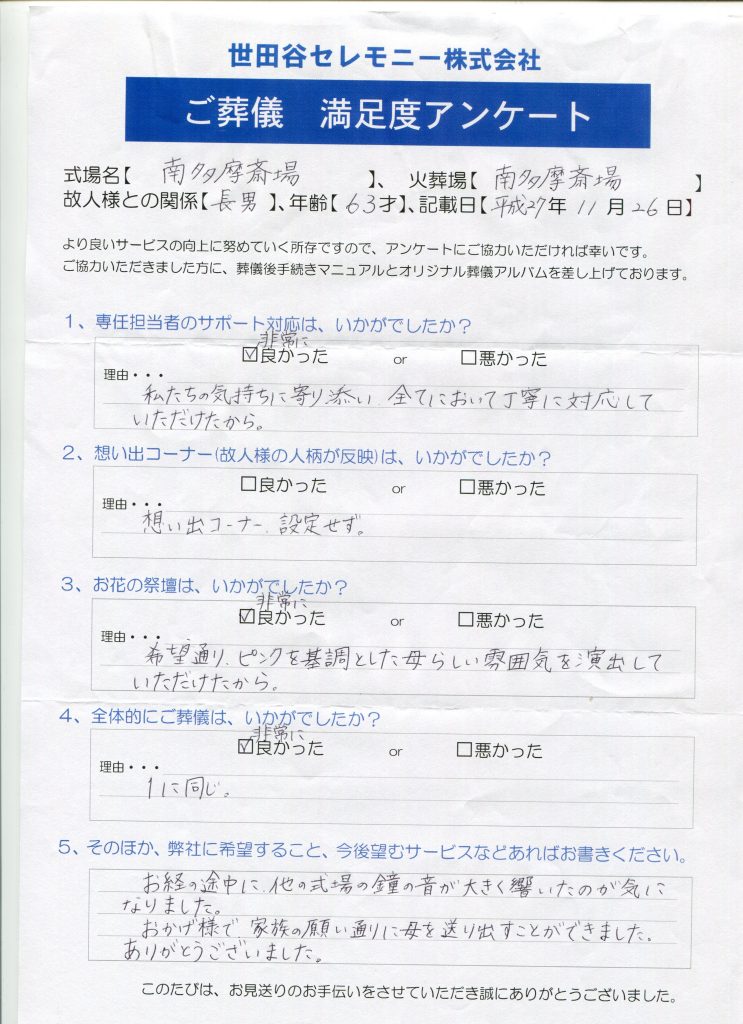 世田谷セレモニー株式会社
ご葬儀 満足度アンケート
式場名【 南多摩斎場 】、 火葬場【 南多摩斎場 】
故人様との関係【長男】、年齢【63才】、記載日【平成27年 11月 26日】
より良いサービスの向上に努めていく所存ですので、アンケートにご協力いただければ幸いです。
ご協力いただきました方に、葬儀後手続きマニュアルとオリジナル葬儀アルバムを差し上げております。
1、専任担当者のサポート対応は、いかがでしたか?
非常に
☑良かった or □悪かった
理由・・・
私たちの気持ちに寄り添い 全てにおいて丁寧に対応して
いただけたから。
2、想い出コーナー(故人様の人柄が反映)は、いかがでしたか?
□良かった or □悪かった
理由・・・
想い出コーナー、設定せず。
3、お花の祭壇は、いかがでしたか?
非常に
☑良かった or □悪かった
理由・・・
希望通り、ピンクを基調とした母らしい雰囲気を演出して
いただけたから。
4、全体的にご葬儀は、いかがでしたか?
非常に
☑良かった or □悪かった
理由・・・
1に同じ。
5、そのほか、弊社に希望すること、今後望むサービスなどあればお書きください。
お経の途中に、他の式場の鐘の音が大きく響いたのが気に
なりました。
おかげ様で、家族の願い通りに母を送り出すことができました。
ありがとうございました。
このたびは、お見送りのお手伝いをさせていただき誠にありがとうございました。